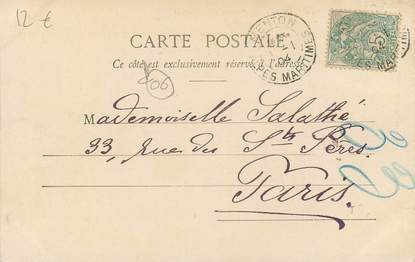 12 €
MENTON
CARTE POSTALE
Ce côté est exclusivement réservé à l'adresse
04
ALPES MARITIMES
906
Mademoiselle Salathé
33, rue des Sts Pères.
Paris.